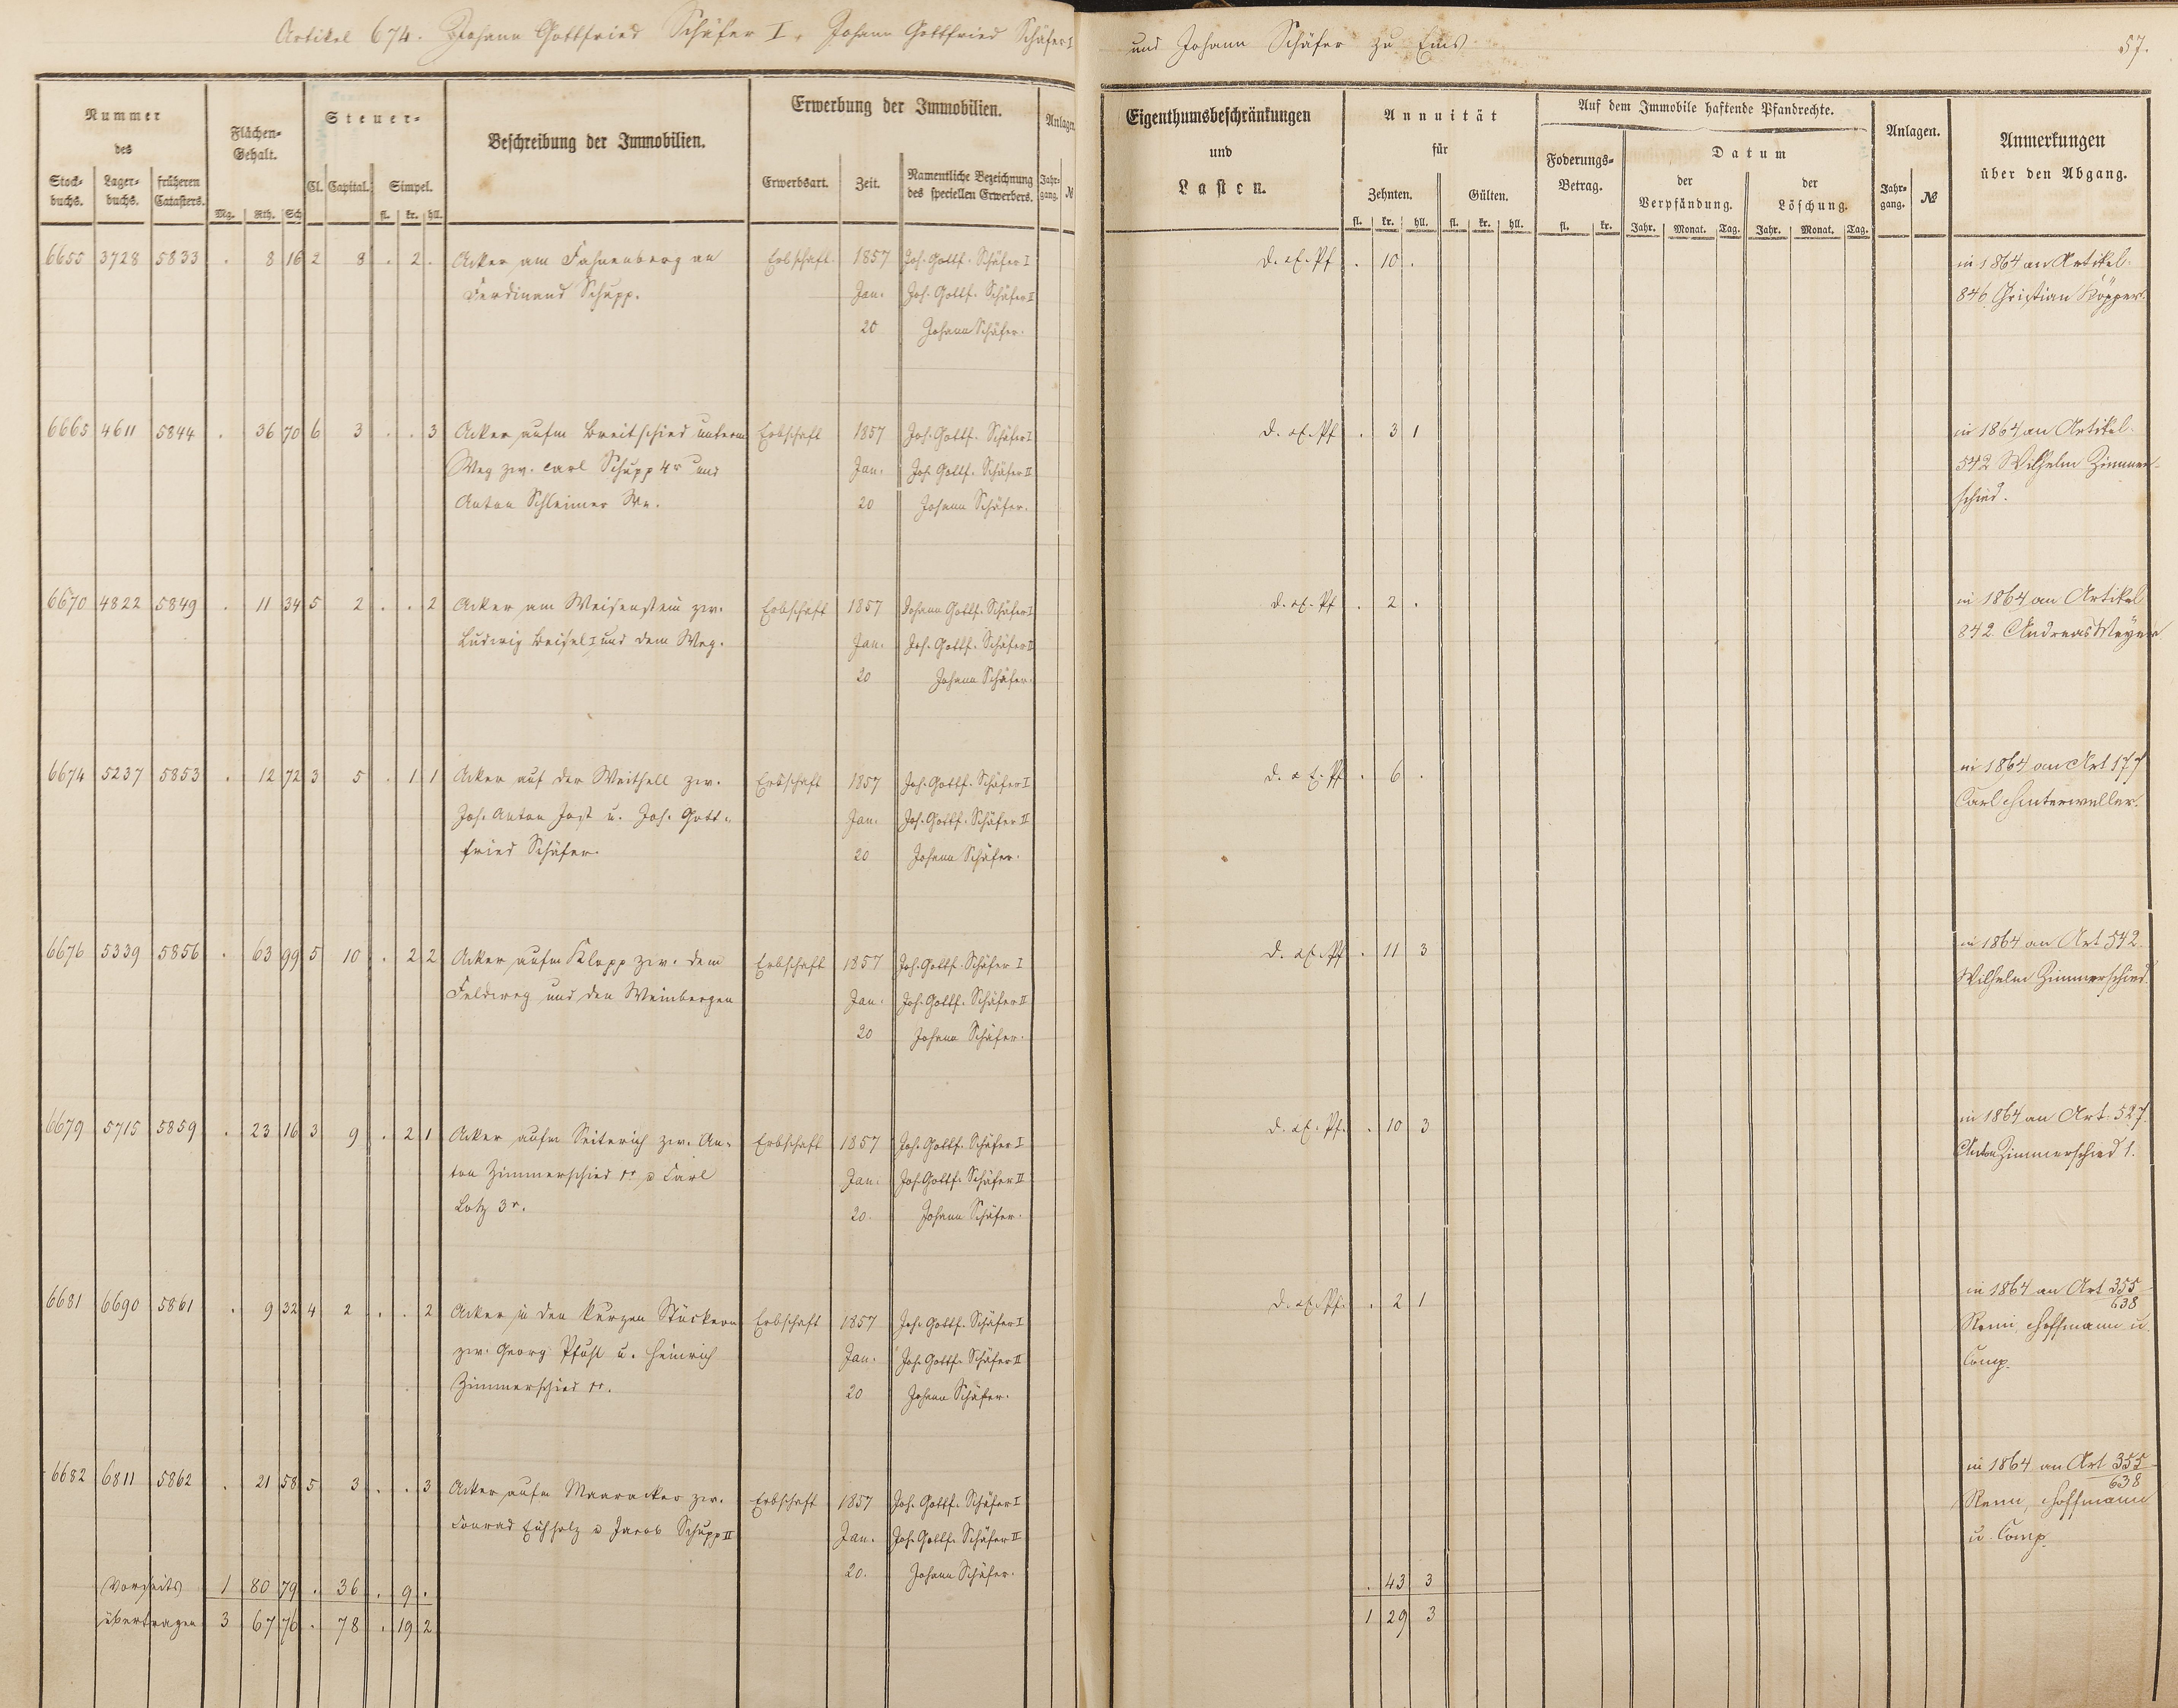 Artikel 674. Johann Gottfried Schäfer I, Johann Gottfried Schäfer II
und Johann Schäfer zu Ems
57.
Nummer des
Stock-buchs. Lager-buchs. früheren Catasters.
Flächen-Gehalt.
Mg. Rth. Sch
Steuer-
Cl. Capital. Simpel.
fl. kr. hll.
Beschreibung der Immobilien.
Erwerbung der Immobilien.
Erwerbsart. Zeit. Namentliche Bezeichnung des speciellen Erwerbers.
Anlagen
Jahr-gang. №
Eigenthumsbeschränkungen
und
Lasten.
Annuität
für
Zehnten. Gülten.
fl. kr. hll. fl. kr. hll.
Auf dem Immobile haftende Pfandrechte.
Foderungs-Betrag.
fl. kr.
Datum
der Verpfändung. der Löschung.
Jahr. Monat. Tag. Jahr. Monat. Tag.
Anlagen.
Jahr-gang. №
Anmerkungen
über den Abgang.
6655 3728 5833 . 8 16 2 8 . 2 . Acker am Fahnenberg an Erbschaft 1857 Joh. Gottf. Schäfer I . 10 . in 1864 an Artikel
Ferdinand Schupp. Jan. Joh. Gottf. Schäfer II 846 Christian Köpper.
20 Johann Schäfer.
6665 4611 5844 . 36 70 6 3 . . 3 Acker aufm Breitschied unterm Erbschaft 1857 Joh. Gottf. Schäfer I . 3 1 in 1864 an Artikel
Weg zw. Carl Schupp 4r und Jan. Joh. Gottf. Schäfer II 542 Wilhelm Zimmer-
Anton Schleimer We. 20 Johann Schäfer. schied.
6670 4822 5849 . 11 34 5 2 . . 2 Acker am Weisenstein zw. Erbschaft 1857 Johann Gottf. Schäfer I . 2 . in 1864 an Artikel
Ludwig Beisel I und dem Weg. Jan. Joh. Gottf. Schäfer II 842 Andreas Meyer
20 Johann Schäfer.
6674 5237 5853 . 12 72 3 5 . 1 1 Acker auf der Weithell zw. Erbschaft 1857 Joh. Gottf. Schäfer I . 6 . in 1864 an Art 177
Joh. Anton Jost u. Joh. Gott- Jan. Joh. Gottf. Schäfer II Carl Hinterweller.
fried Schäfer. 20 Johann Schäfer.
6676 5339 5856 . 63 99 5 10 . 2 2 Acker aufm Klopp zw. dem Erbschaft 1857 Joh. Gottf. Schäfer I . 11 3 in 1864 an Art 542
Feldweg und den Weinbergen Jan. Joh. Gottf. Schäfer II Wilhelm Zimmerschied
20 Johann Schäfer.
6679 5715 5859 . 23 16 3 9 . 2 1 Acker aufm Seiterich zw. An- Erbschaft 1857 Joh. Gottf. Schäfer I . 10 3 in 1864 an Art. 527
ton Zimmerschied 1r u Carl Jan. Joh. Gottf. Schäfer II Anton Zimmerschied 1.
Lotz 3r. 20. Johann Schäfer.
6681 6690 5861 . 9 32 4 2 . . 2 Acker in den kurzen Stückern Erbschaft 1857 Joh. Gottf. Schäfer I . 2 1 in 1864 an Art 355/638
zw. Georg Pfuhl u. Heinrich Jan. Joh. Gottf. Schäfer II Hoffmann u
Zimmerschied 1r. 20 Johann Schäfer. Comp.
6682 6811 5862 . 21 58 5 3 . . 3 Acker aufm Maaracker zw. Erbschaft 1857 Joh. Gottf. Schäfer I in 1864 an Art 355/638
Conrad Eichholz u Jacob Schupp II Jan. Joh. Gottf. Schäfer II Hoffmann
20. Johann Schäfer. u. Comp.
Vorseits 1 80 79 . 36 . 9 . . 43 3
übertragen 3 67 76 . 78 . 19 2 1 29 3